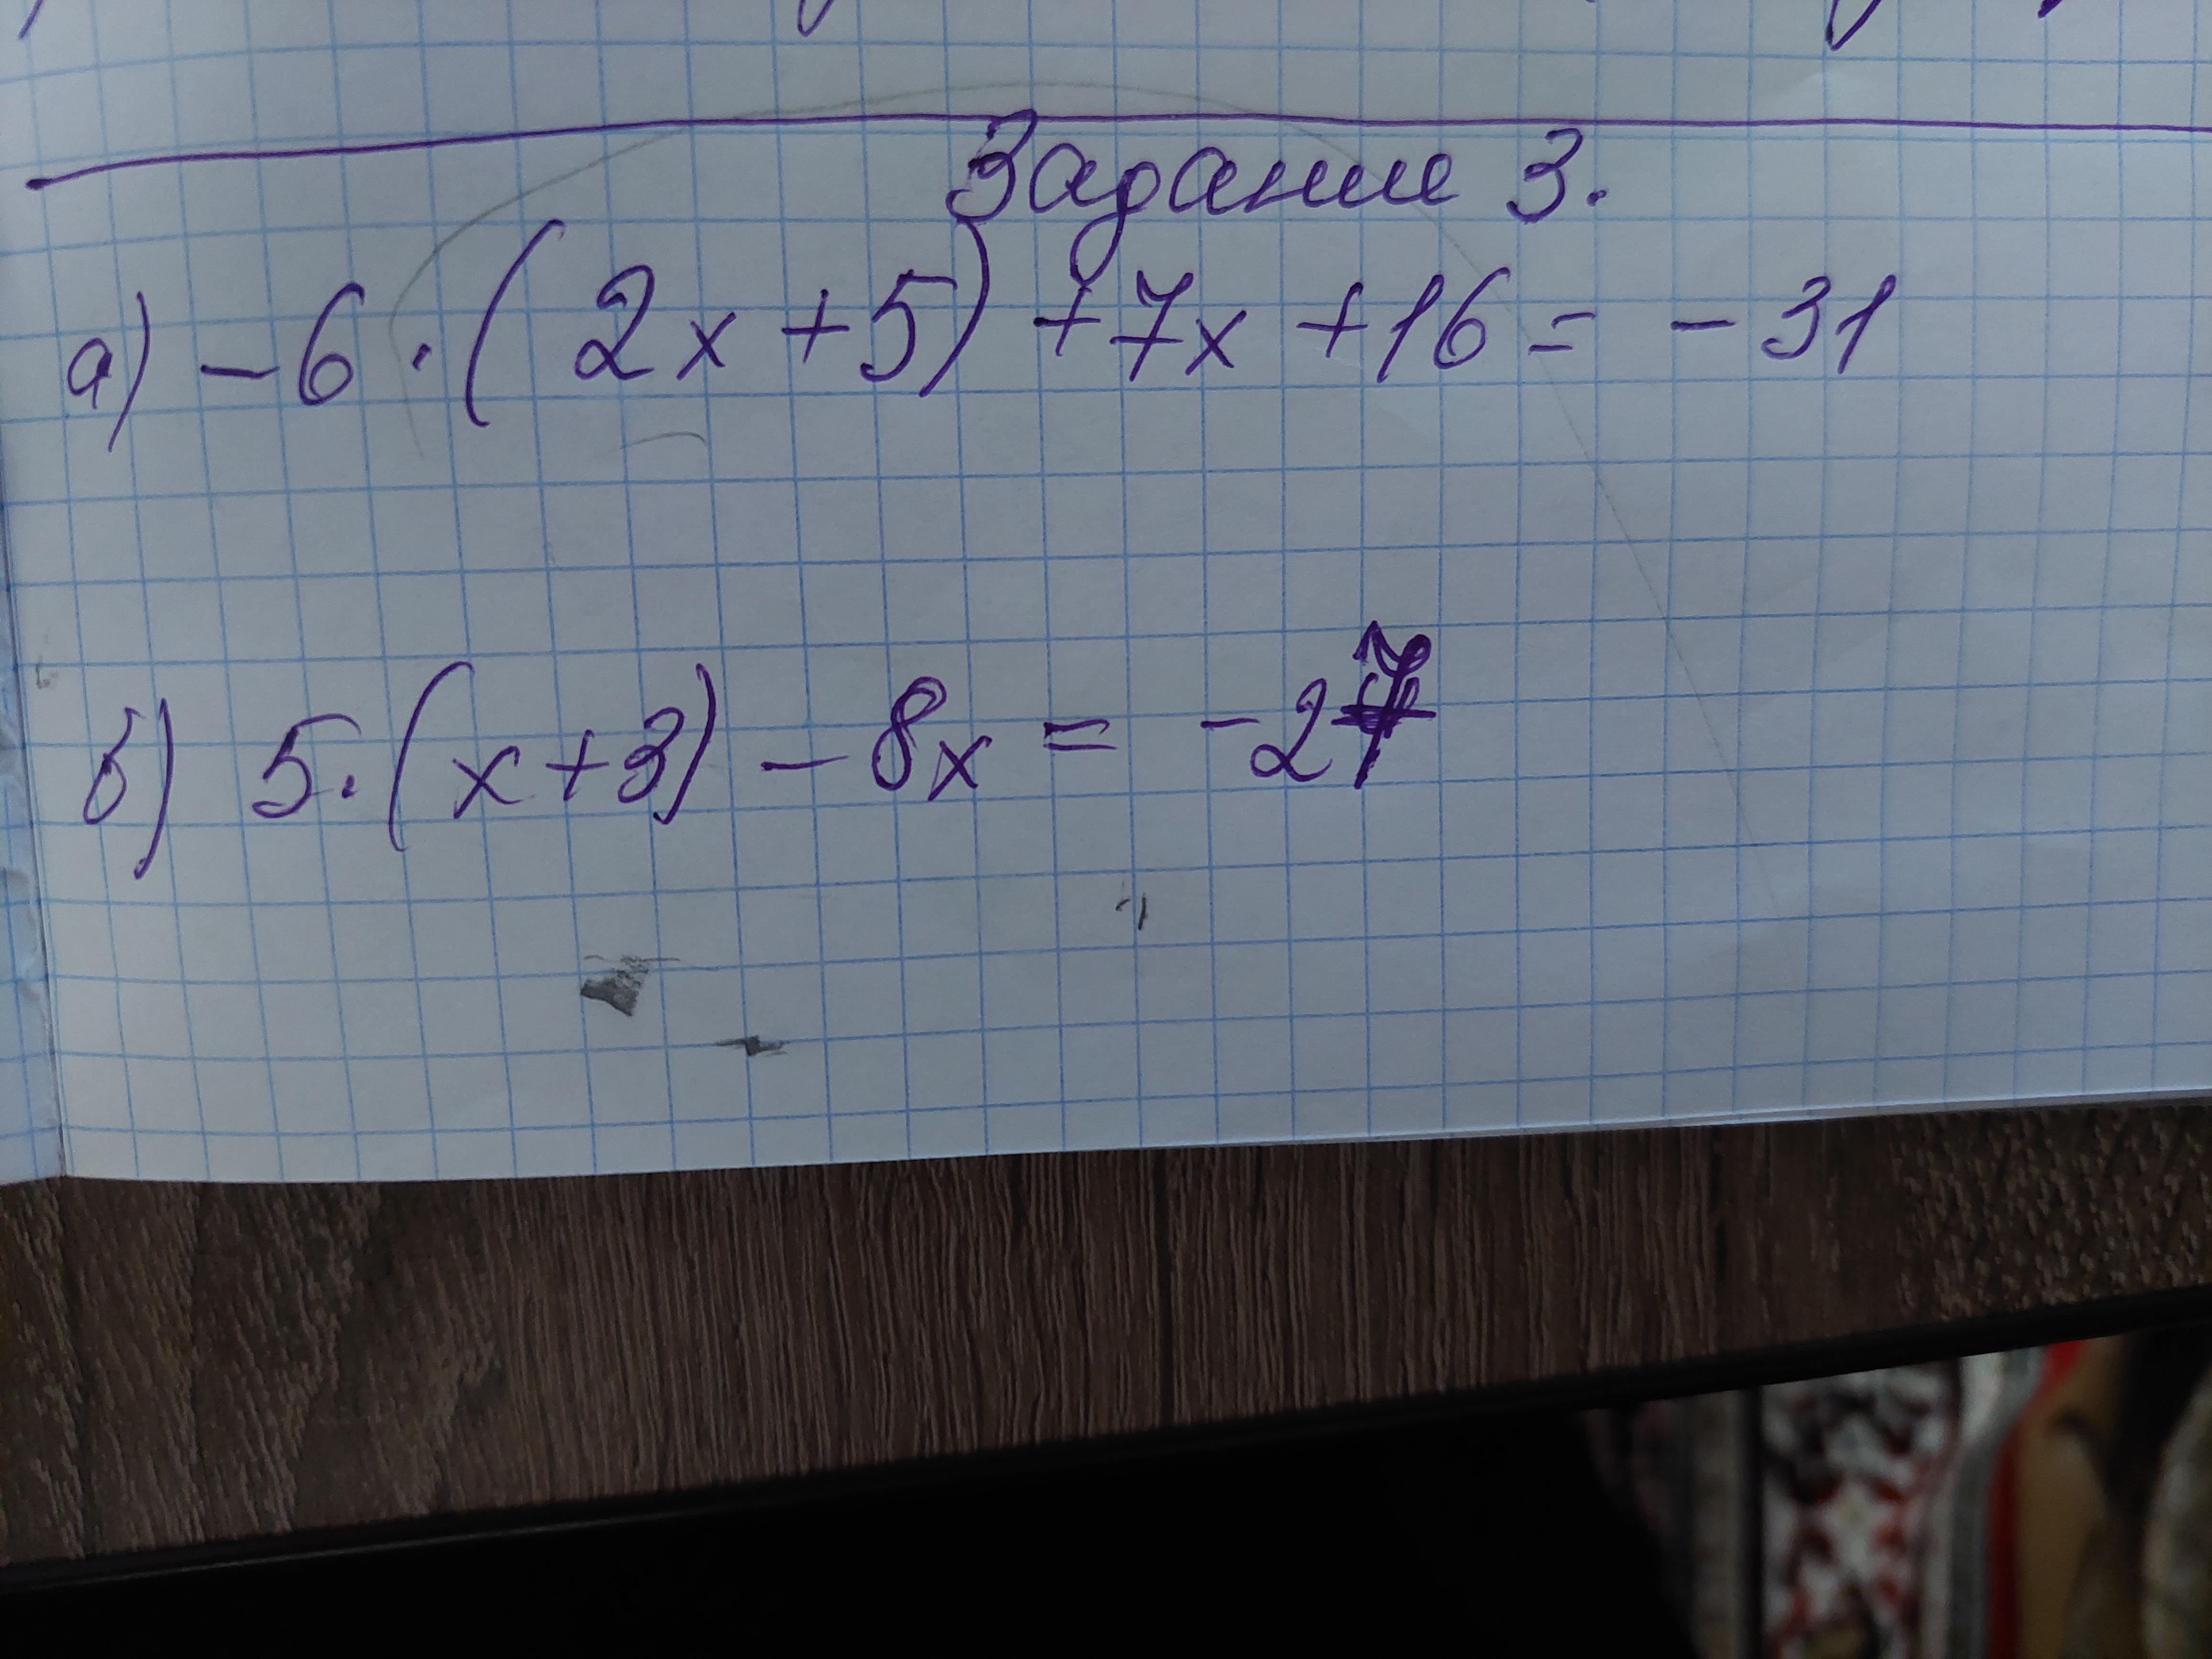 Задание 3.
а) -6·(2x+5)+7x+16 = -31
б) 5·(x+3)-8x = -27